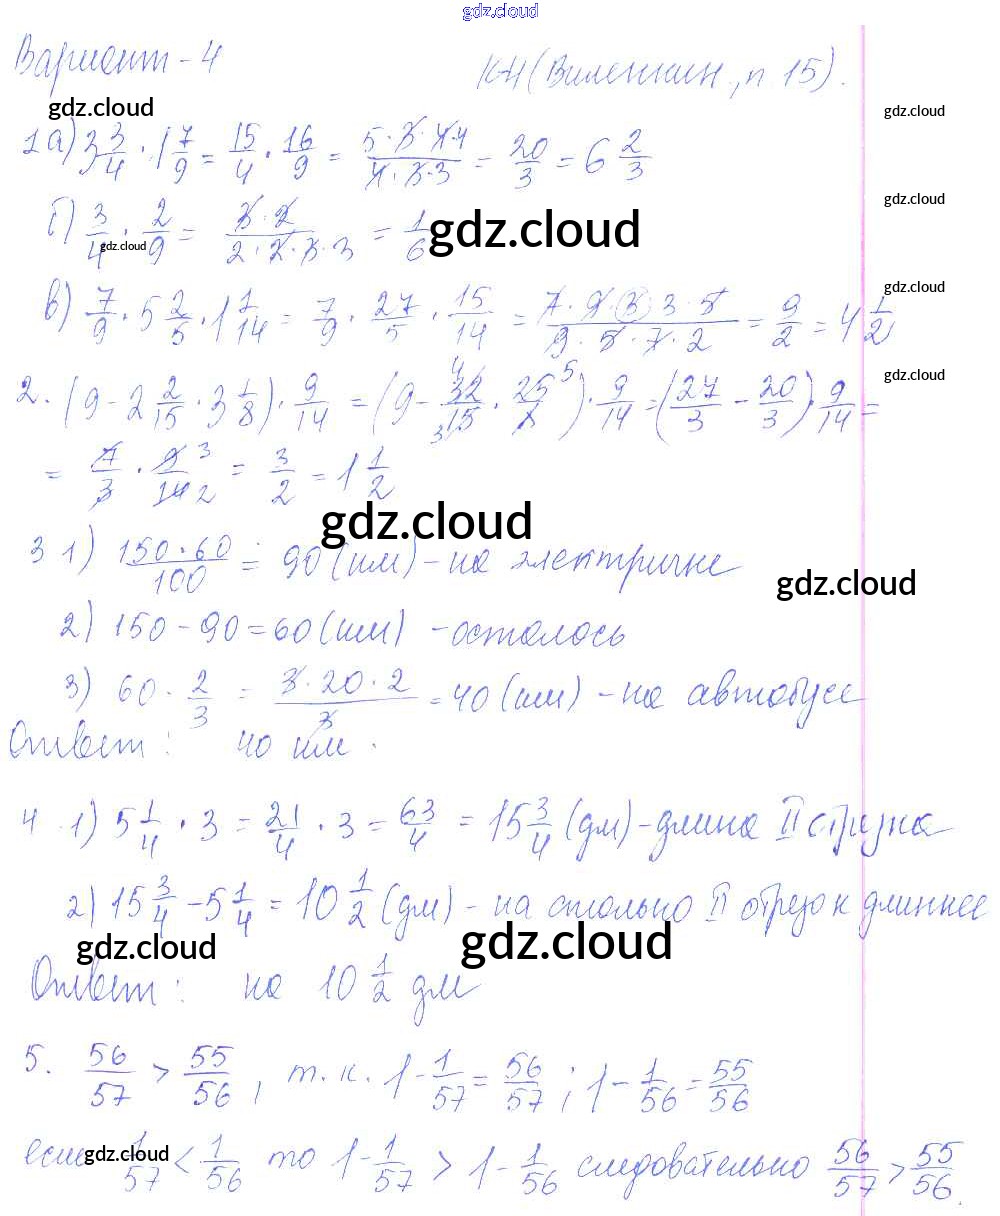 gdz.cloud
Вариант - 4
К-4 (Виленкин, п. 15).
gdz.cloud
gdz.cloud
1 а) 3 3/4 · 1 7/9 = 15/4 · 16/9 = 5·3·4·4/4·3·3 = 20/3 = 6 2/3
gdz.cloud
б) 3/4 · 2/9 = 3·2/2·2·3·3 = 1/6
gdz.cloud
gdz.cloud
gdz.cloud
в) 7/9 · 5 2/5 · 1 1/14 = 7/9 · 27/5 · 15/14 = 7·9·(3)·3·5/9·5·7·2 = 9/2 = 4 1/2
gdz.cloud
2. (9 - 2 2/15 · 3 1/8) · 9/14 = (9 - 32/15 · 25/8) · 9/14 = (27/3 - 20/3) · 9/14 =
= 7/3 · 9/14 = 3/2 = 1 1/2
gdz.cloud
3 1) 150·60/100 = 90 (км) - на электричке
gdz.cloud
2) 150 - 90 = 60 (км) - осталось
3) 60 · 2/3 = 3·20·2/3 = 40 (км) - на автобусе
Ответ: 40 км.
4 1) 5 1/4 · 3 = 21/4 · 3 = 63/4 = 15 3/4 (дм) - длина II отрезка
2) 15 3/4 - 5 1/4 = 10 1/2 (дм) - на столько II отрезок длиннее
gdz.cloud
gdz.cloud
Ответ: на 10 1/2 дм
5. 56/57 > 55/56, т.к. 1 - 1/57 = 56/57; 1 - 1/56 = 55/56
если 1/57 < 1/56 то 1 - 1/57 > 1 - 1/56 следовательно 56/57 > 55/56.
gdz.cloud